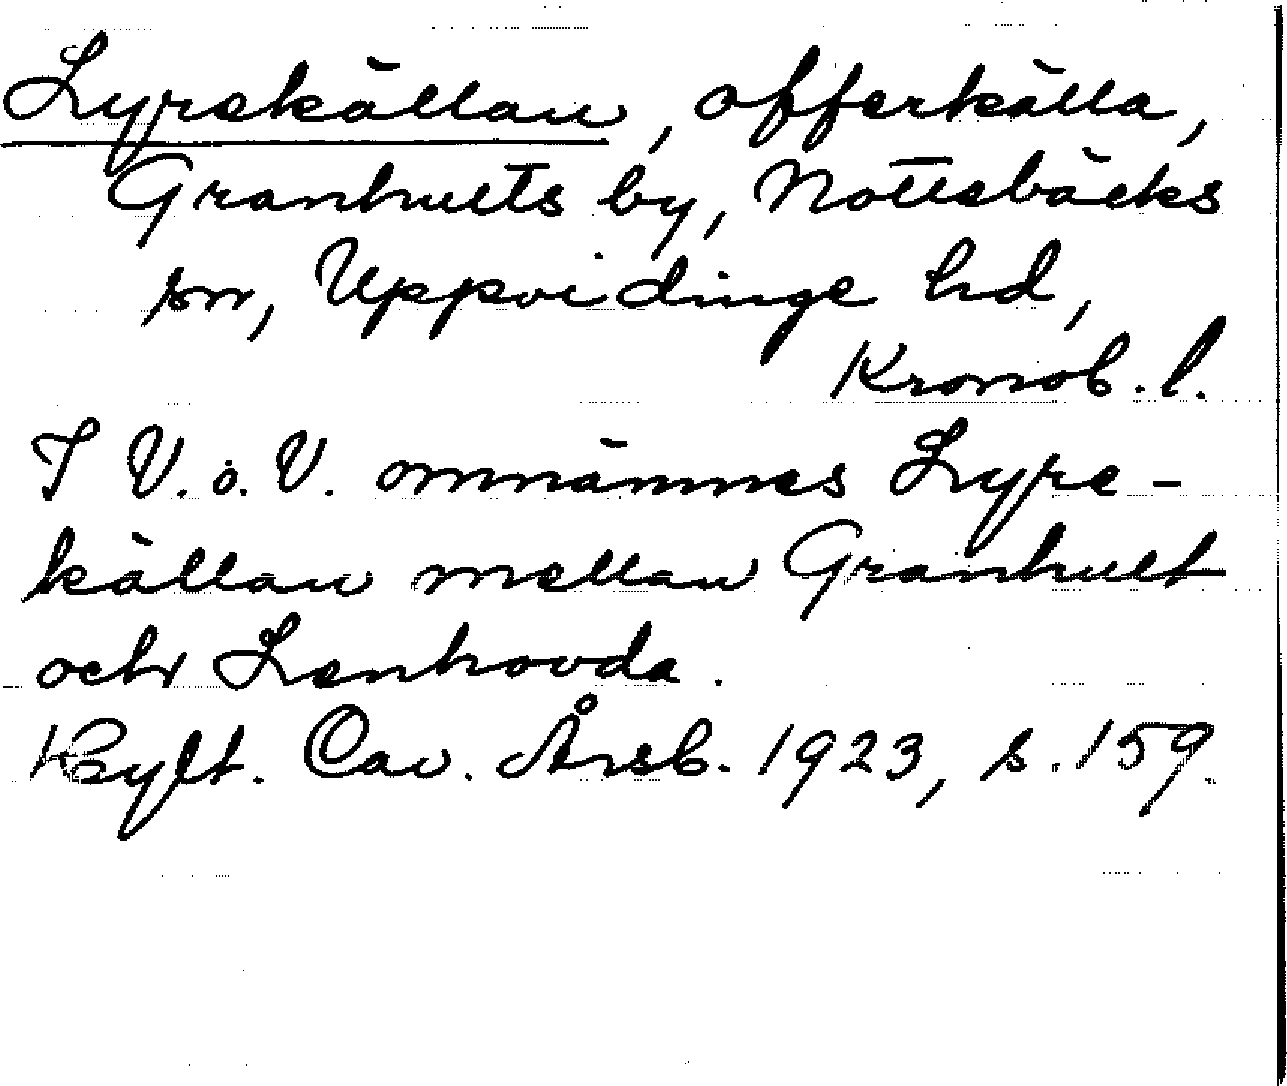 Lyrekällan, offerkälla,
Granhults by, Nottebäcks
sn, Uppvidinge hd,
Kronob. l.
I V. o. V. omnämnes Lyre-
källan mellan Granhult
och Lenhovda.
Hylt. Cav. Årsb. 1923, s. 159.